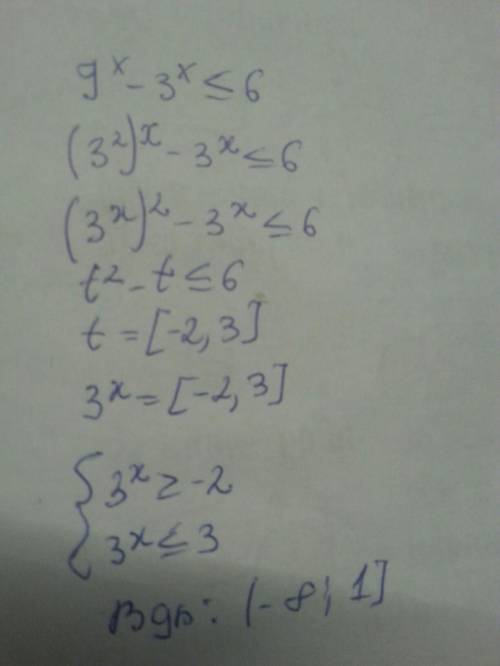 9^x - 3^x ≤ 6
(3^2)^x - 3^x ≤ 6
(3^x)^2 - 3^x ≤ 6
t^2 - t ≤ 6
t = [-2, 3]
3^x = [-2, 3]
{ 3^x ≥ -2
3^x ≤ 3
Відп: (-∞; 1]